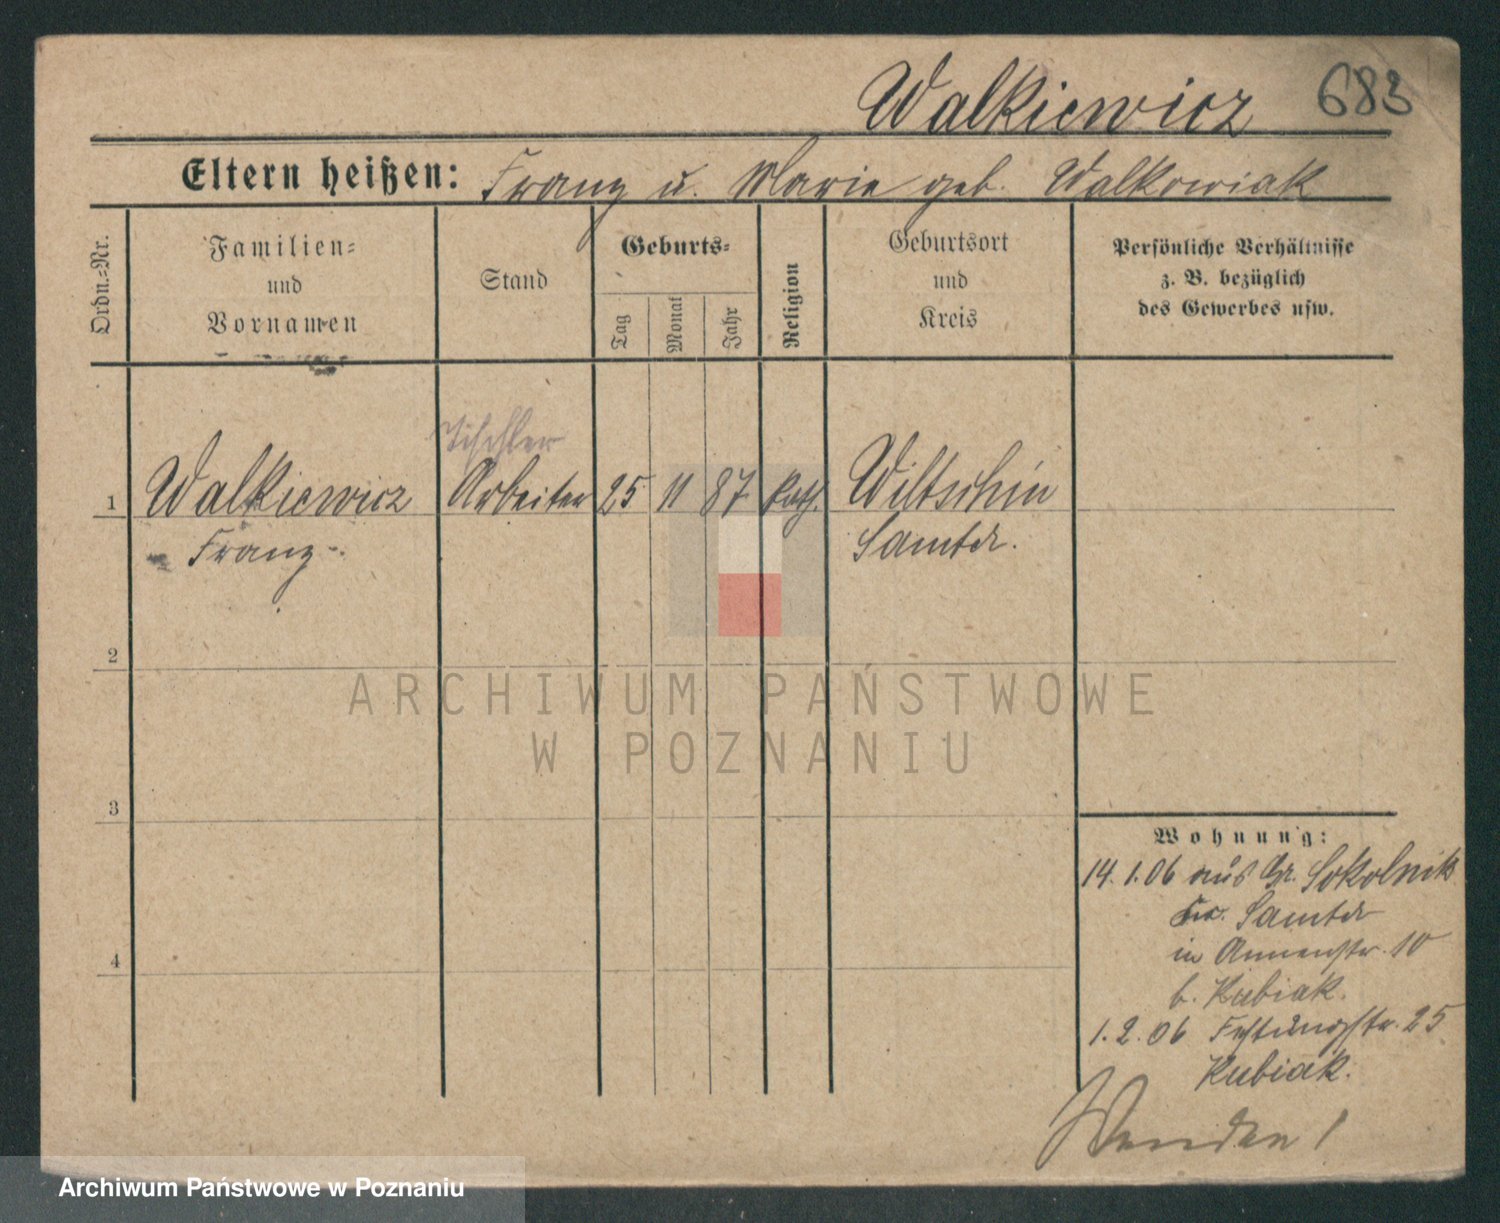 Walkiewicz 683
Eltern heißen: Franz u. Marie geb. Walkowiak
Ordn.-Nr.
Familien-
und
Vornamen
Stand
Geburts-
Tag
Monat
Jahr
Religion
Geburtsort
und
Kreis
Persönliche Verhältnisse
z. B. bezüglich
des Gewerbes usw.
Tischler
1 Walkiewicz Arbeiter 25 11 87 kath. Wiltschin
Franz Samter.
2
ARCHIWUM PAŃSTWOWE
W POZNANIU
3
Wohnung:
14.1.06 aus Gr. Sokolnik
Kr. Samter
in Annenstr. 10
4
b. Kubiak.
1.2.06 Festungsstr. 25
Kubiak.
Wenden!
Archiwum Państwowe w Poznaniu